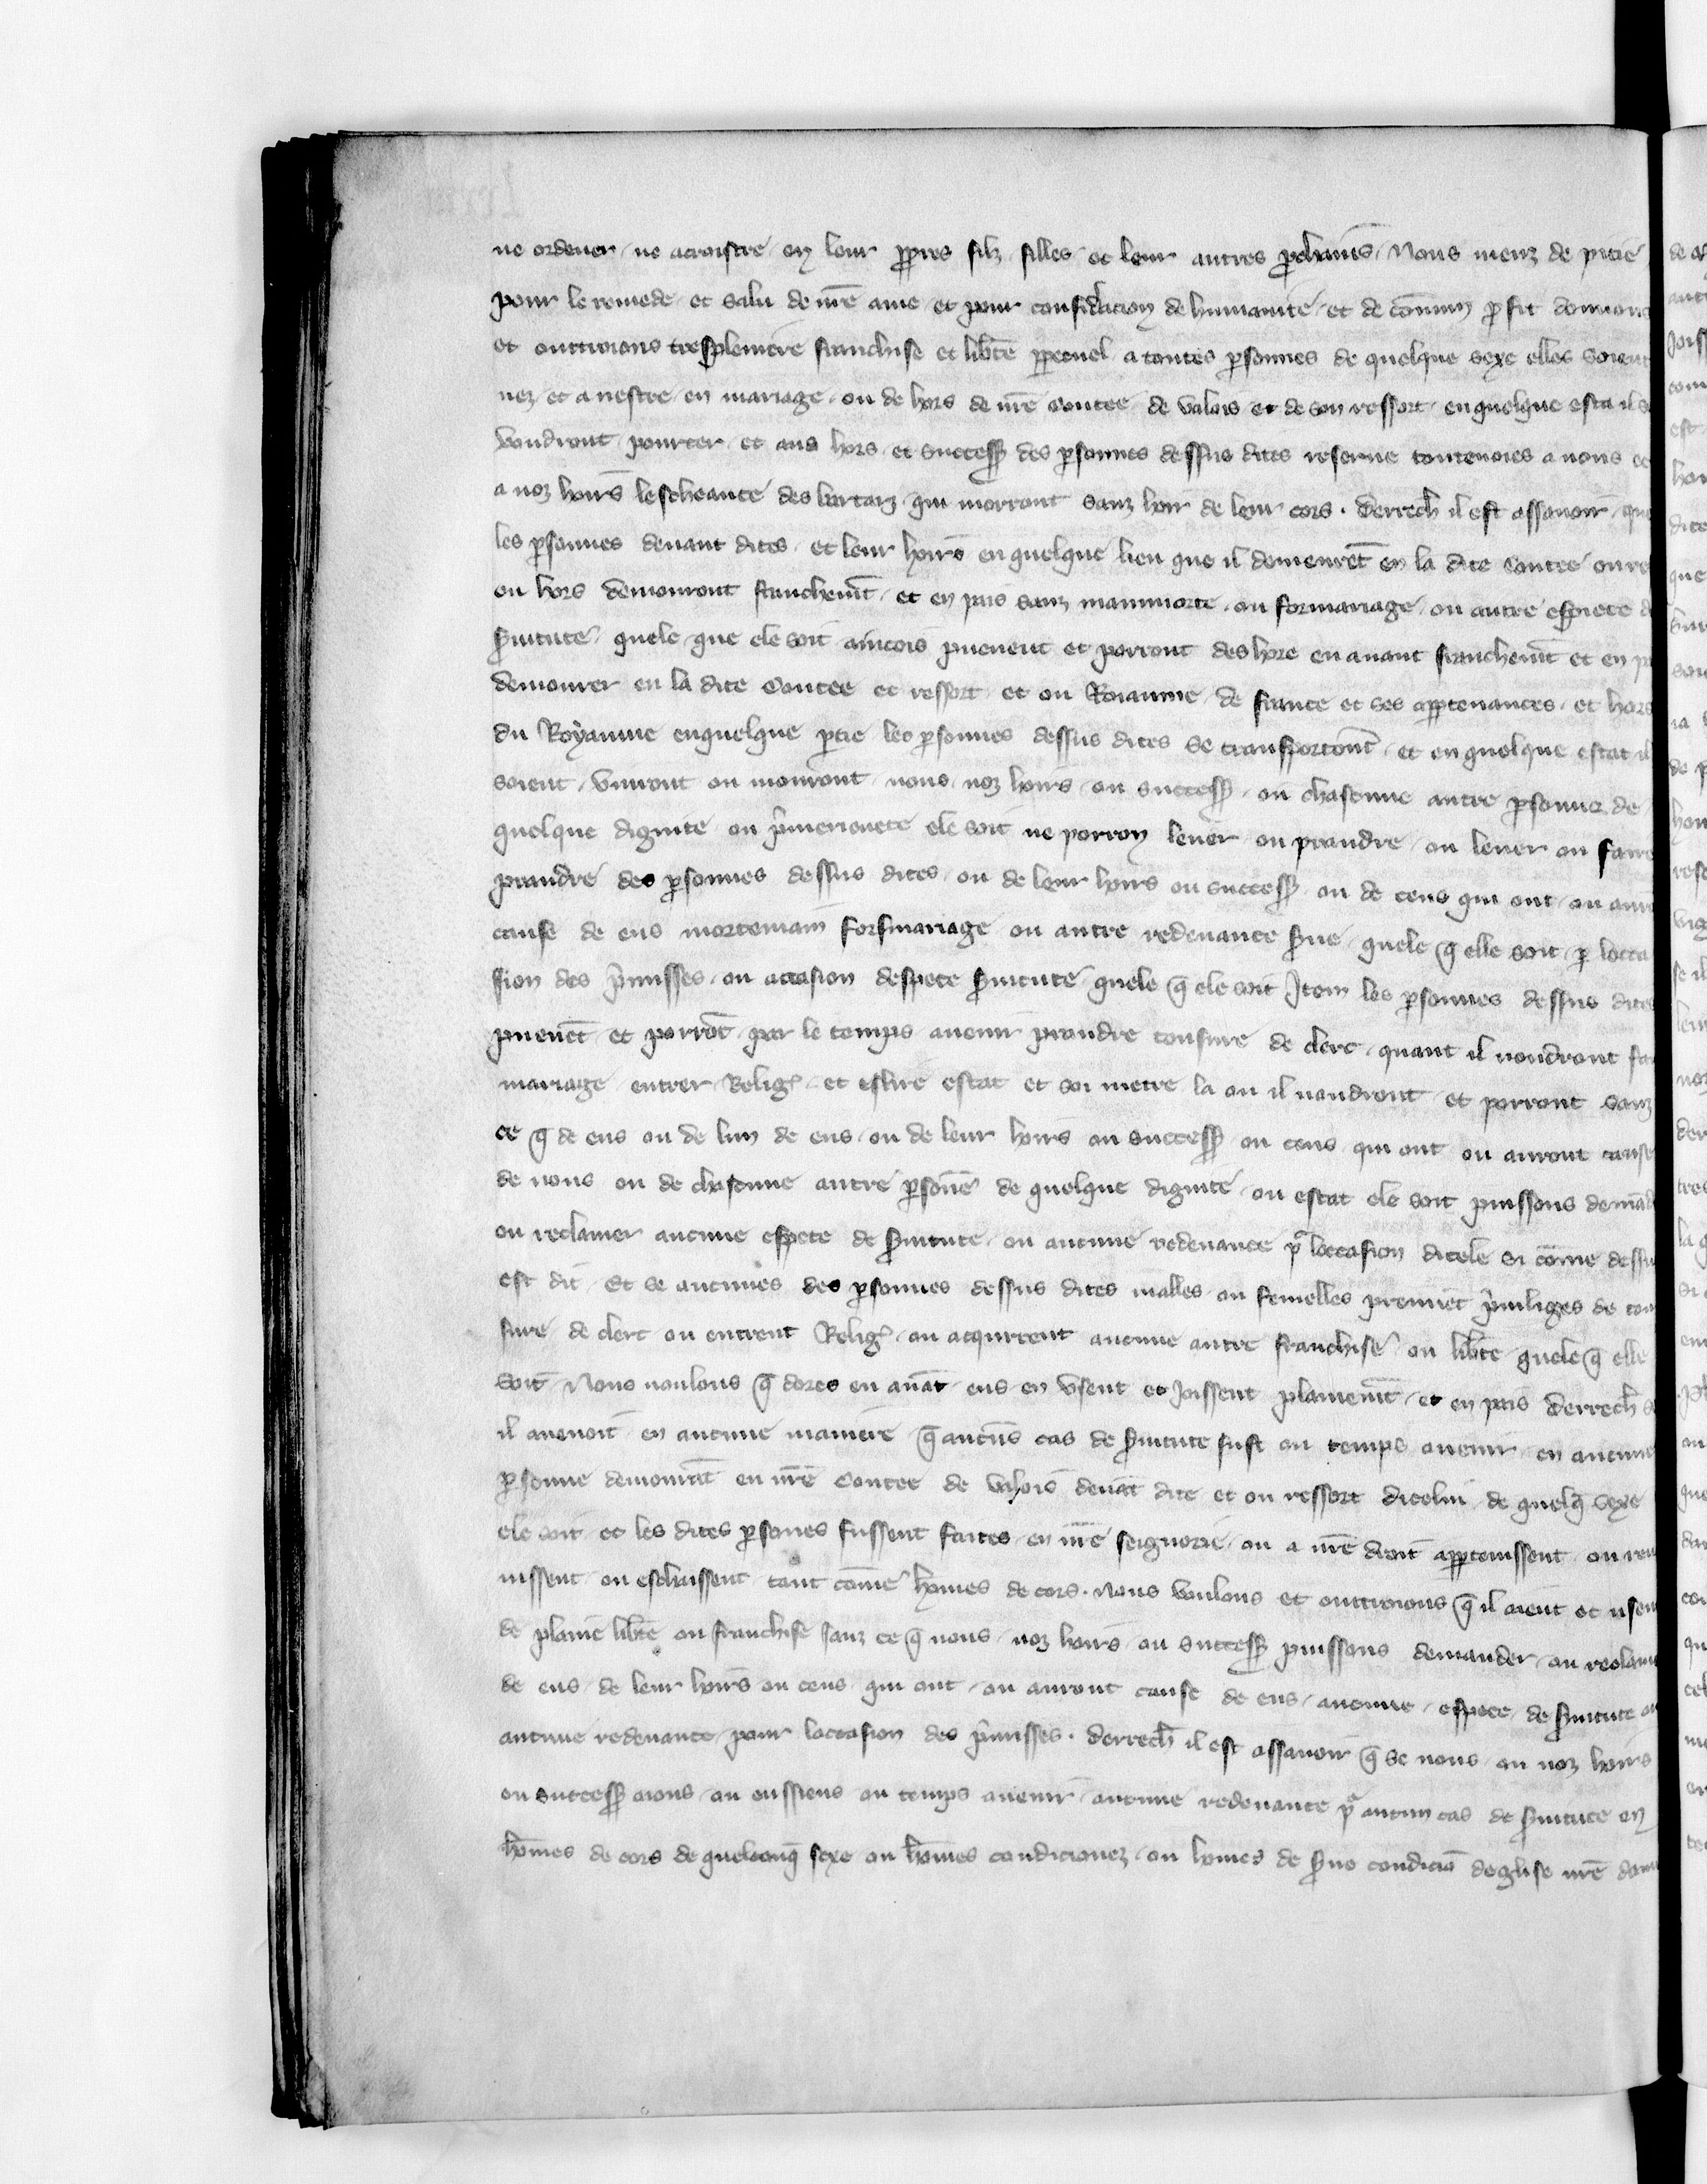 ne ordener ne acroistre en leur ꝓpres filz filles et leur autres ꝓchains Nous meuz de pitie
pour le remede et salu de nr̃e ame et pour consid̾acion de humanite et de cōmun ꝓfit donnons
et outtroions tresplenierē franchise et lib̾te ꝑpetuel a toutes ꝑsonnes de quelque sexe elles soient
nez et a nestre en mariage ou de hors de nr̃e Contee de valois et de son ressort en quelque esta il s
voudront pourter et aus hors et success̾ des ꝑsonnes dessus dites reserue toutenoies a nous et
a noz hoirs lescheance des bartarz qui morront sanz hoir de leur cors . derrech̾ il est assauoir que
les ꝑsonnes deuant dites et leur hoirs en quelque lieu que il demeurēt en la dite Contee ou re
ou hors demouront franchemēt et en pais sanz mainmorte ou formariage ou autre espiece d
s̾uitute quele que ele soit aincois pueuent et porront des hore en auant franchemēt et en p
demourer en la dite Contee et ressort et ou Roiaume de france et ses apꝑtenances et hors
du Royaume en quelque ꝑtie les ꝑsonnes dessus dites se transportoūt et en quelque estat il
soient viuront ou mouront nous noz hoirs ou success̾ ou chascune autre ꝑsonne de
quelque dignite ou p̾mierionete ele soit ne porron leuer ou prandre ou leuer ou faire
prandre des ꝑsonnes dessus dites ou de leur hoirs ou success̾ ou de ceus qui ont ou auro
cause de eus mortemain forsmariage ou autre redeuance s̾ue quele q̄ elle soit ꝑ locca
sion des p̾misses ou accasion despece s̾uitute quele q̄ ele soit Item les ꝑsonnes dessus dites
pueuēt et porrōt par le temps auenir prandre tonsure de clerc quant il uoudront fai
mariage entrer Relig̾ et eslire estat et soi metre la ou il uoudront et porront sanz
ce q̄ de eus ou de lun de eus ou de leur hoirs ou success̾ ou ceus qui ont ou auront cause
de nous ou de chascune autre ꝑsōne de quelque dignite ou estat ele soit puissons demād
ou reclamer aucune espece de s̾uitute ou aucune redeuance pᵃ loccasion dicele si cōme dessu
est dit Et se aucunes des ꝑsonnes dessus dites malles ou femelles prennēt p̾uileges de ton
sure de clerc ou entrent Relig̾ ou acquirent aucune autre franchise ou lib̾te quele q̄ elle
soit Nous uoulons q̄ dores en auāt eus en vsent et joissent plainemēt et en pais derrech̾ s
il auenoit en aucune maniere q̄ aucūs cas de s̾uitute fust ou temps auenir en aucune
ꝑsonne demourāt en nr̃e Contee de valois deuāt dite et ou ressort dicelui de quelq̄ sexe
ele soit et les dites ꝑsones fussent faites en nr̃e seignorie ou a nr̃e droit apꝑtenissent ou ven
nissent ou escheissent tant cōme hōmes de cors . Nous voulons et outtroions q̄ il aient et usen
de plaine lib̾te ou franchise sanz ce q̄ nous noz hoirs ou success̾ puissons demander ou reclame
de eus de leur hoirs ou ceus qui ont ou auront cause de eus aucune espece de s̾uitute ou
aucune redeuance pour loccasion des p̾misses . derrech̾ il est assauoir q̄ se nous ou noz hoirs
ou success̾ aions ou eussiens ou temps auenir aucune redeuance pᵃ aucun cas de s̾uitute en
hōmes de cors de quelconq̄ sexe ou hōmes condicionez ou homes de s̾ue condiciō deglise nr̃e dom